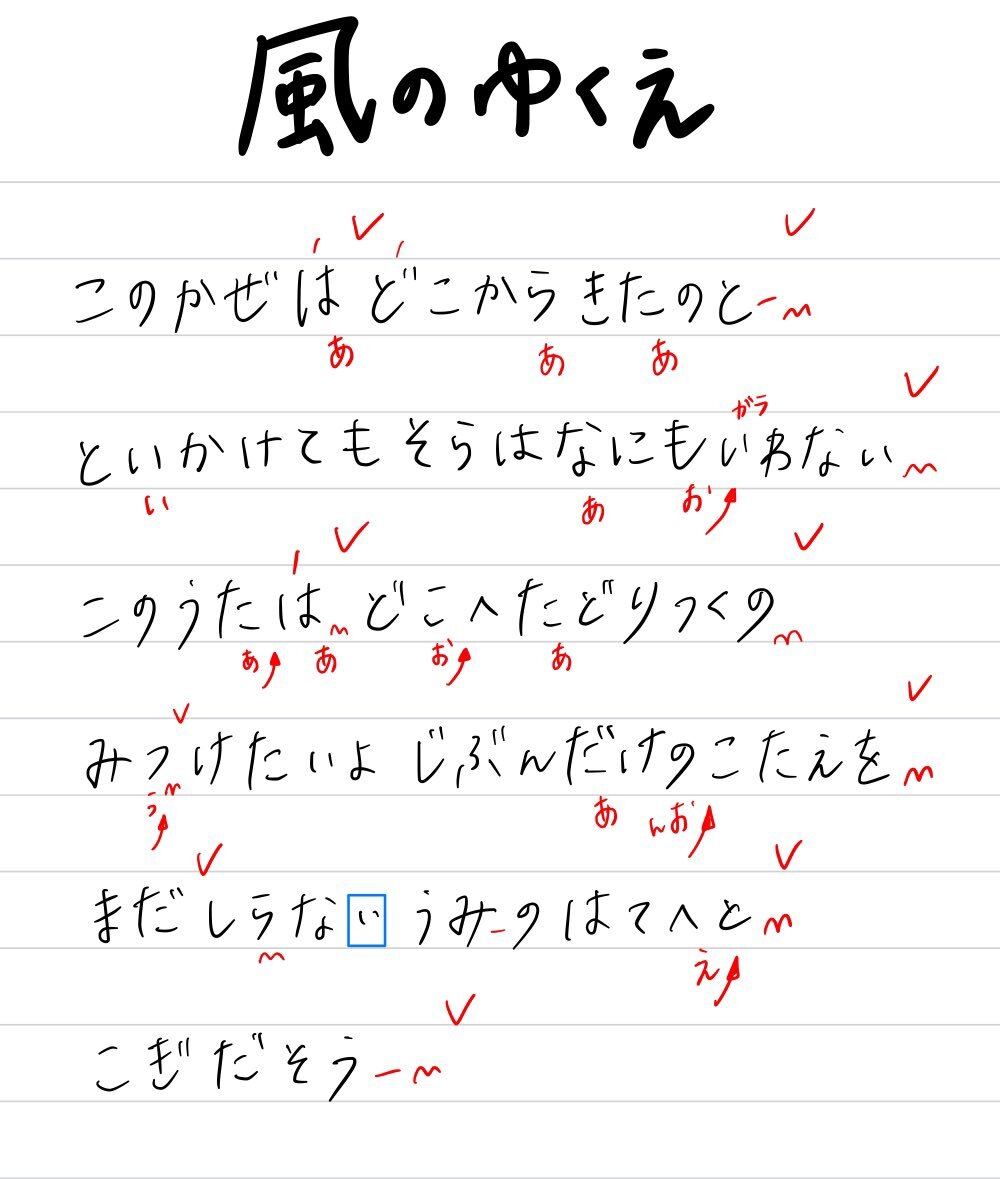 風のゆくえ
このかぜは どこから きたのとー
あ あ あ
がラ
といかけても そらはなにもいわない
い あ お
このうたは どこへたどりつくの
あ あ お あ
みつけたいよ じぶんだけのこたえを
う あ んお
まだしらない うみーのはてへと
え
こぎだそうー